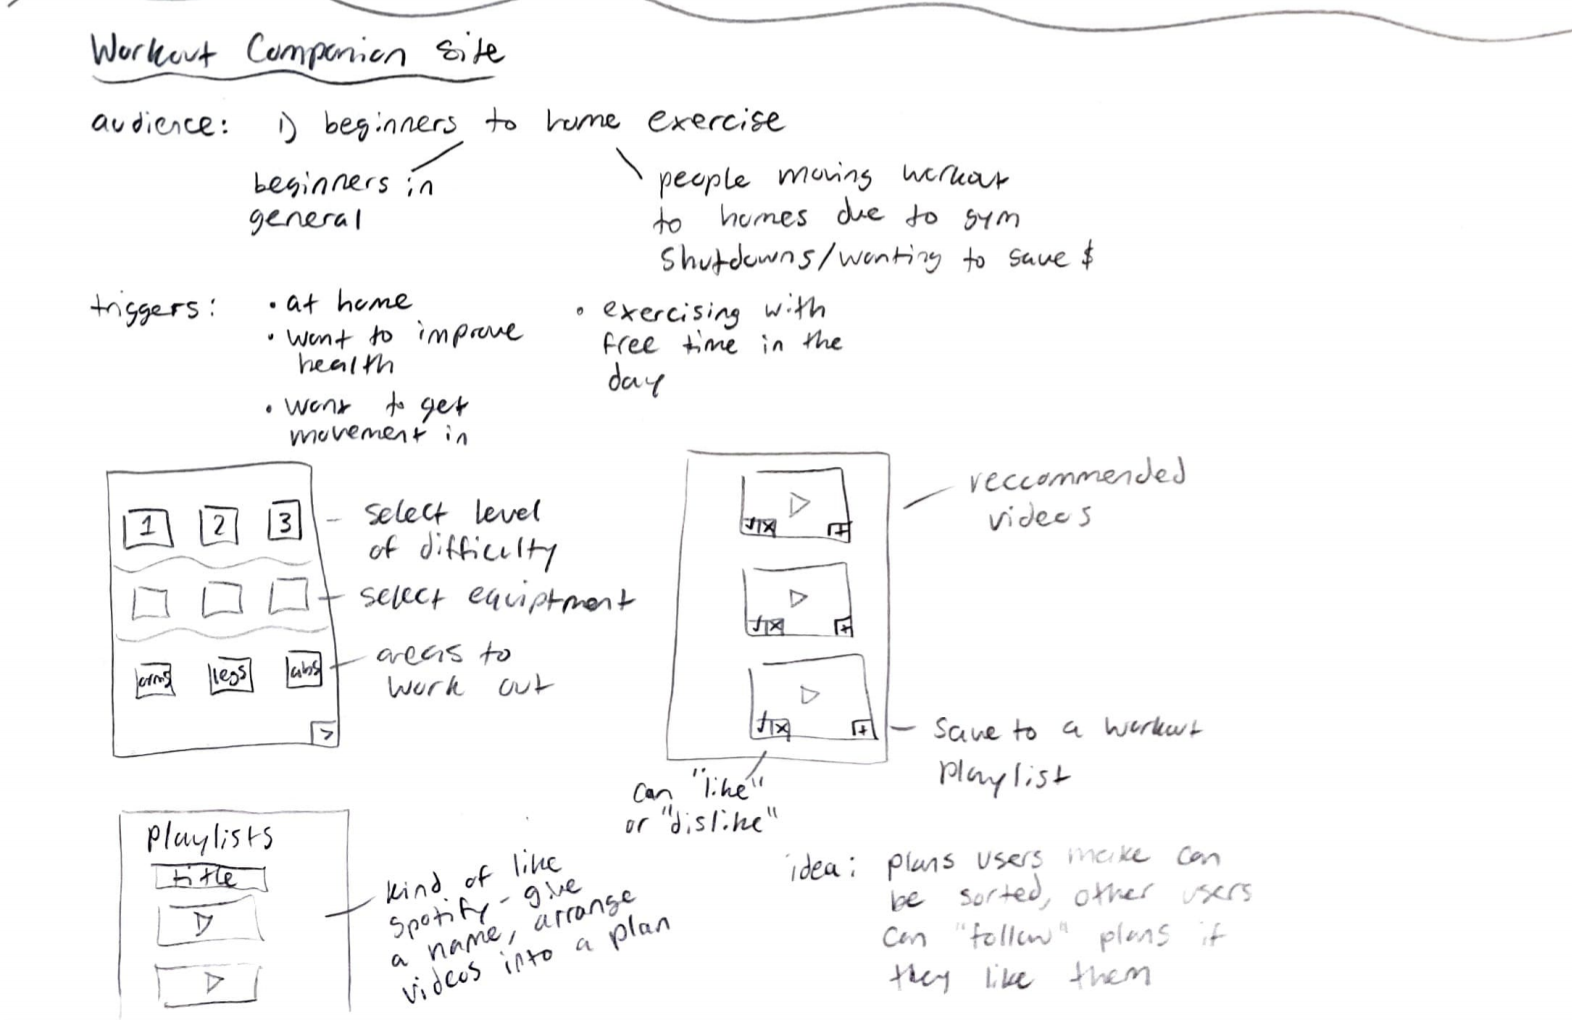 Workout Companion Site
audience: 1) beginners to home exercise
beginners in
general
people moving workout
to homes due to gym
shutdowns/wanting to save $
triggers:
• at home
• want to improve
health
• want to get
movement in
• exercising with
free time in the
day
1 2 3
select level
of difficulty
select equiptment
arms legs abs
areas to
work out
>
reccommended
videos
+
+
+
save to a workout
playlist
can "like"
or "dislike"
Playlists
title
kind of like
spotify - give
a name, arrange
videos into a plan
idea: plans users make can
be sorted, other users
can "follow" plans if
they like them